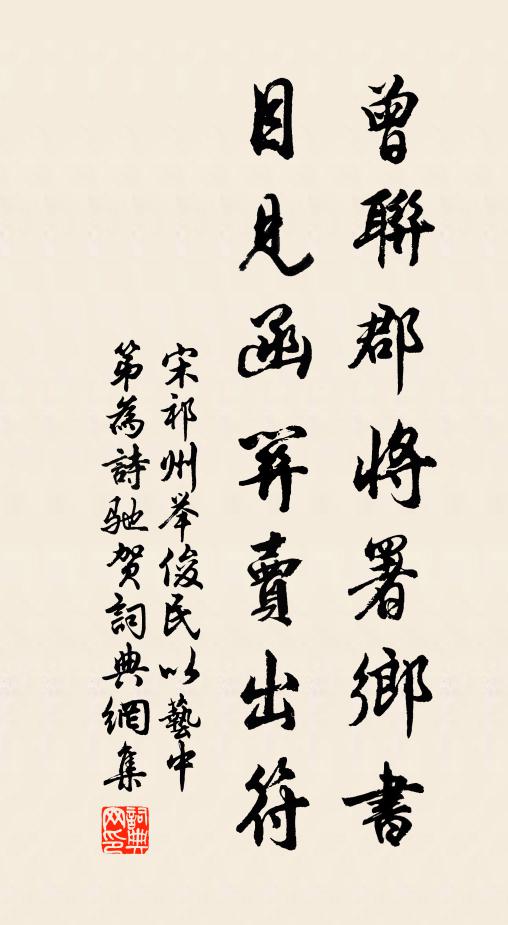 曾聯郡將署鄉書
目見函關賣出符
宋祁州举俊民以藝中
第為詩馳贺詞典網集
詞典网印